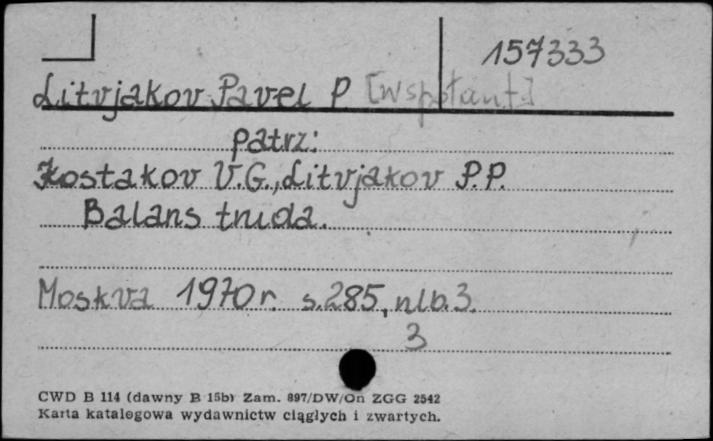 157333
Litvjakov Pavel P [współaut.]
patrz:
Kostakov V.G., Litvjakov P.P.
Balans truda.
Moskva 1970 r. s.285, nlb.3.
3
CWD B 114 (dawny B 15b) Zam. 897/DW/On ZGG 2542
Karta katalogowa wydawnictw ciągłych i zwartych.